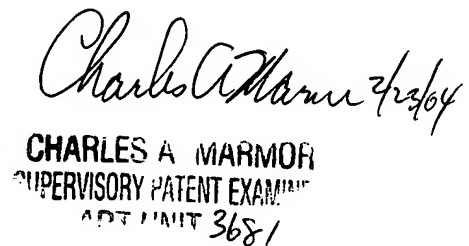 Charles A Marmor 2/23/04
CHARLES A MARMOR
SUPERVISORY PATENT EXAMINE
ART UNIT 3681